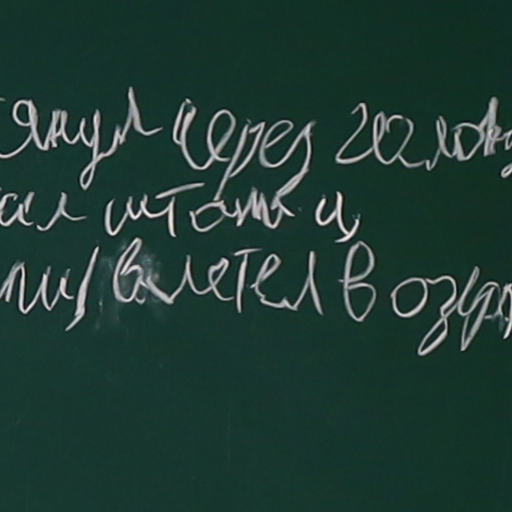 тянул через голову
ал штаны и,
влетел в озер